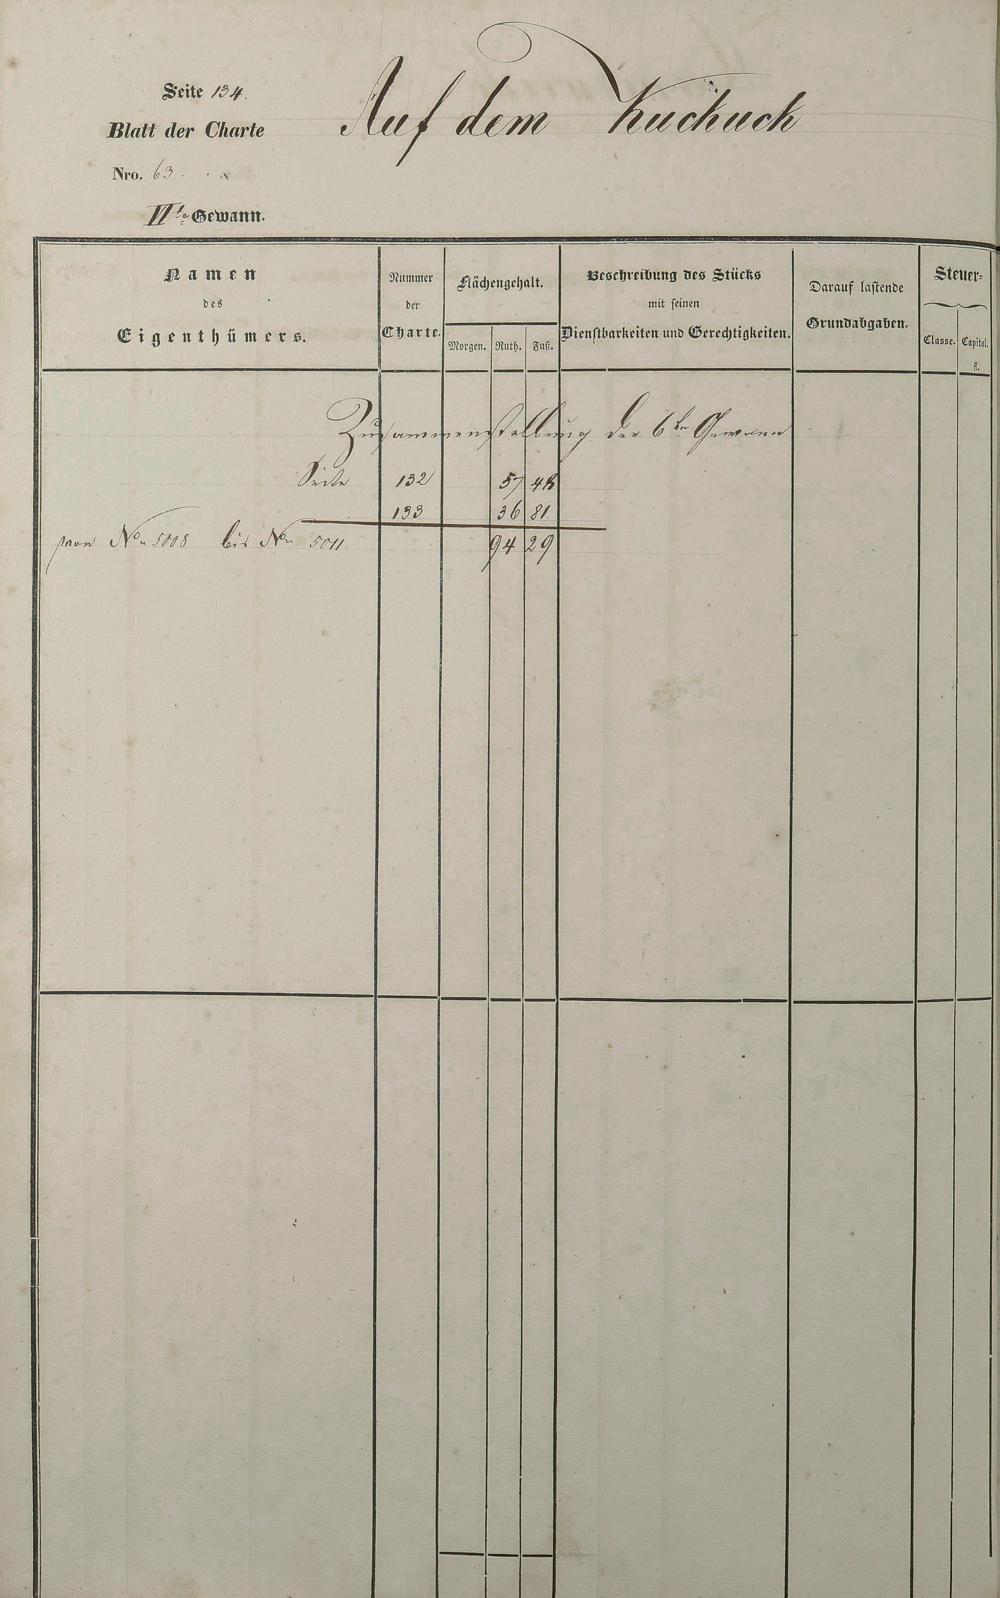 Seite 134.
Auf dem Kuckuck
Blatt der Charte
Nro. 63
VI.te Gewann.
Namen
des
Eigenthümers.
Nummer
der
Charte.
Flächengehalt.
Morgen. Ruth. Fuß.
Beschreibung des Stücks
mit seinen
Dienstbarkeiten und Gerechtigkeiten.
Darauf lastende
Grundabgaben.
Steuer-
Classe. Capital.
fl.
Zusammenstellung der 6ten Gewann
Seite 132 57 48
133 36 81
von No. 5008 bis No. 5011. 94 29